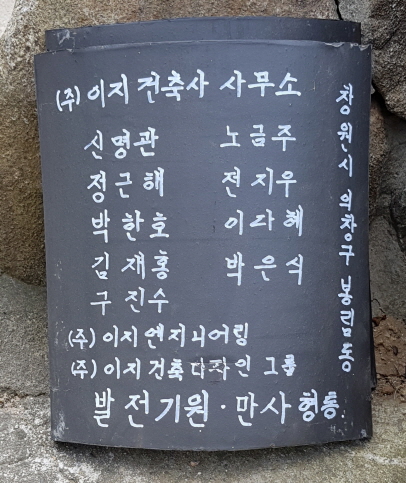 (주) 이지 건축사 사무소
신명관 노금주
정근해 전지우
박한호 이라혜
김재홍 박은식
구진수
(주) 이지 엔지니어링
(주) 이지 건축 디자인 그룹
발전기원 · 만사형통
창원시 의창구 봉림동